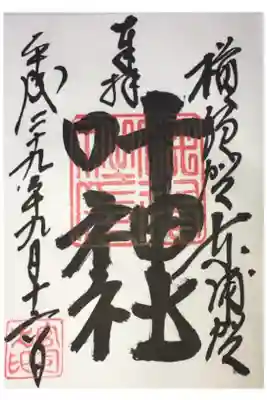 横須賀東浦賀
奉拝
叶神社
平成二十九年九月十六日